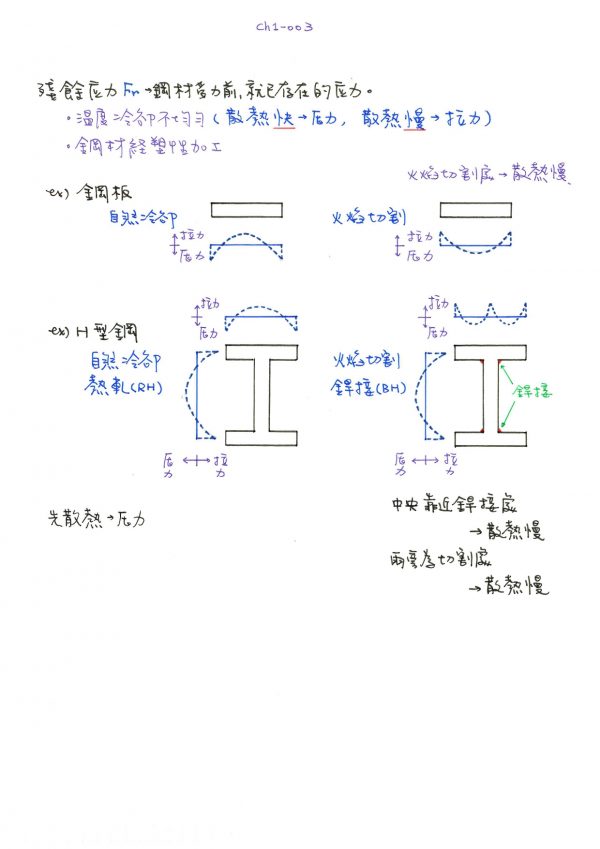 Ch1-003
殘餘应力 Fr→鋼材受力前,就已存在的应力。
·溫度冷卻不均勻(散熱快→压力, 散熱慢→拉力)
·鋼材経塑性加工
火焰切割處→散熱慢
ex) 鋼板
自然冷卻
火焰切割
拉力
压力
拉力
压力
拉力
压力
拉力
压力
ex) H型鋼
自然冷卻
熱軋(RH)
火焰切割
銲接(BH)
銲接
压力
拉力
压力
拉力
先散熱→压力
中央靠近銲接處
→散熱慢
兩端為切割處
→散熱慢